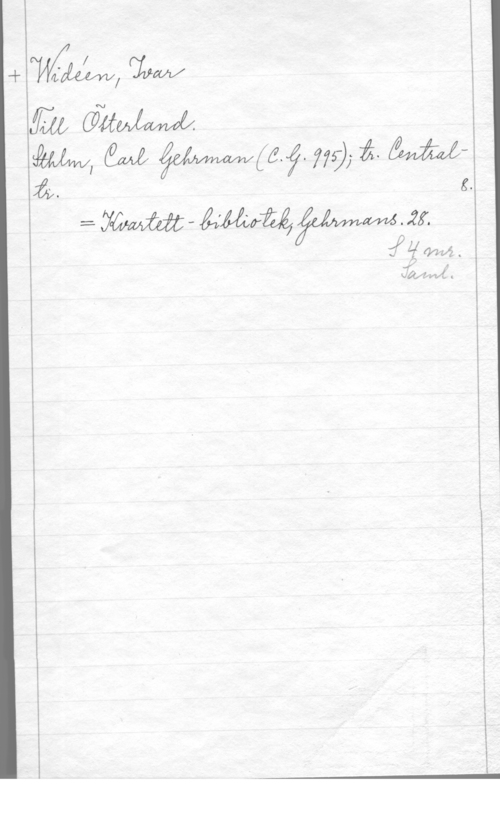 + Widéen, Ivar
Till Österland.
Sthlm, Carl Gehrman (C.G. 995); tr. Central-
tr. 8.
= Kvartett-bibliotek, Gehrmans. 28.
f 4 mr.
Saml.